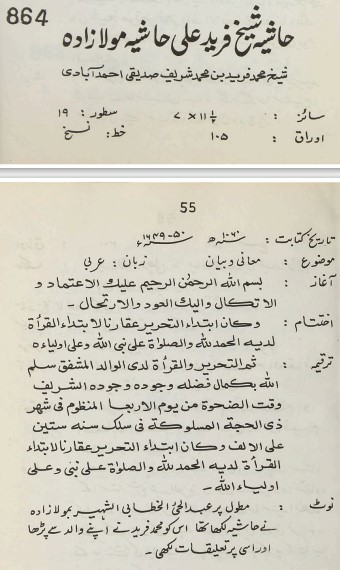 864
حاشیہ شیخ فرید علی حاشیہ مولازادہ
شیخ محمد فرید بن محمد شریف صدیقی احمدآبادی
سائز : ۱۱½ × ۷ سطور : ۱۹
اوراق : ۱۰۵ خط : نسخ
55
تاریخ کتابت : ۱۰۶۰ھ ۵۰-۱۶۴۹ء
موضوع : معانی و بیان زبان : عربی
آغاز : بسم الله الرحمٰن الرحیم علیك الاعتماد و
الاتکال والیك العود والارتحال ۔
اختتام : وکان ابتداء التحریر عقارنا لابتداء القرأة
لدیه الحمد لله والصلواة علی نبی الله وعلی اولیاءه
ترقیمہ : ثم التحریر والقرأة لدی الوالد المشفق سلم
الله بکمال فضله وجوده وجوده الشریف
وقت الضحوة من یوم الاربعا المنظوم فی شهر
ذی الحجة المسلوکة فی سلك سنه ستین
علی الالف وکان ابتداء التحریر عقارنا لابتداء
القرأة لدیه الحمد لله والصلواة علی نبی وعلی
اولیاء الله ۔
نوٹ : مطول پر عبدالحئ الخطابی الشہیر بمولازادہ
نے حاشیہ لکھا تھا اس کو محمد فرید نے اپنے والد سے پڑھا
اور اسی پر تعلیقات لکھی ۔